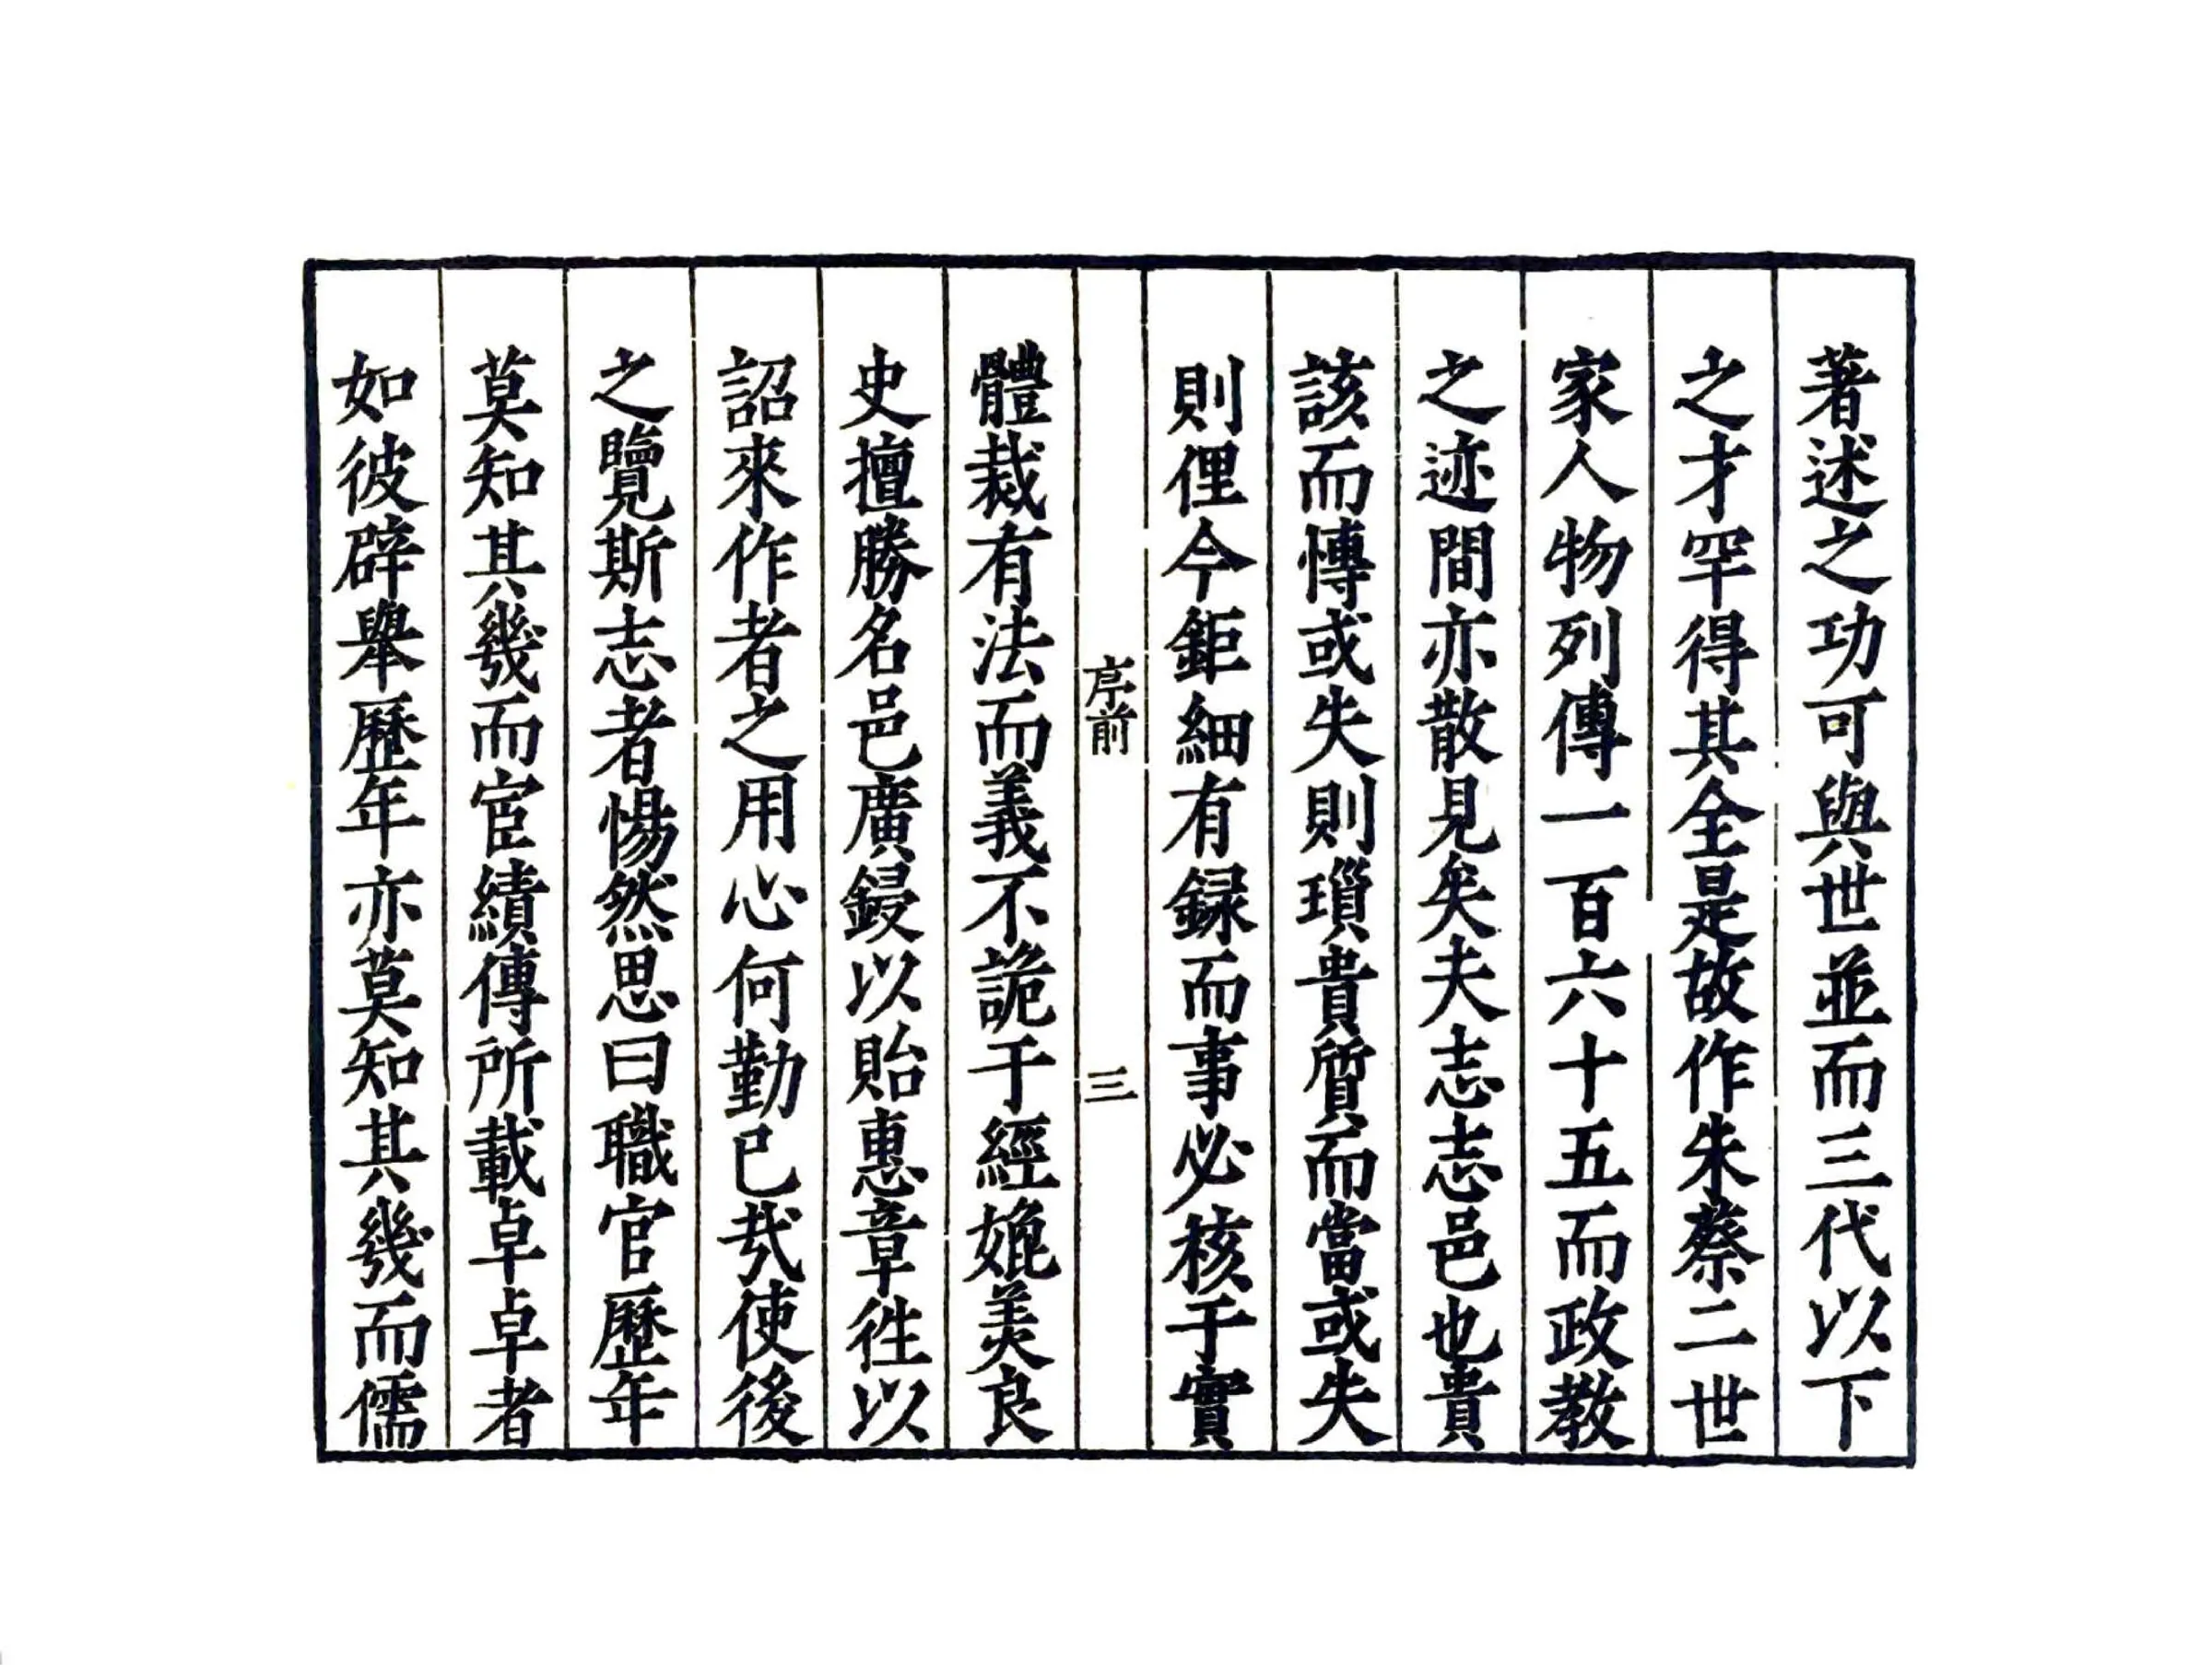 著述之功可與世並而三代以下
之才罕得其全是故作朱蔡二世
家人物列傳一百六十五而政教
之迹間亦散見矣夫志志邑也貴
該而慱或失則瑣貴質而當或失
則俚今鉅細有録而事必核于實
序前 三
體裁有法而義不詭于經媲美良
史擅勝名邑廣鋟以貽惠章徃以
詔來作者之用心何勤已㢤使後
之覽斯志者惕然思曰職官歷年
莫知其幾而宦績傳所載卓卓者
如彼辟舉歷年亦莫知其幾而儒